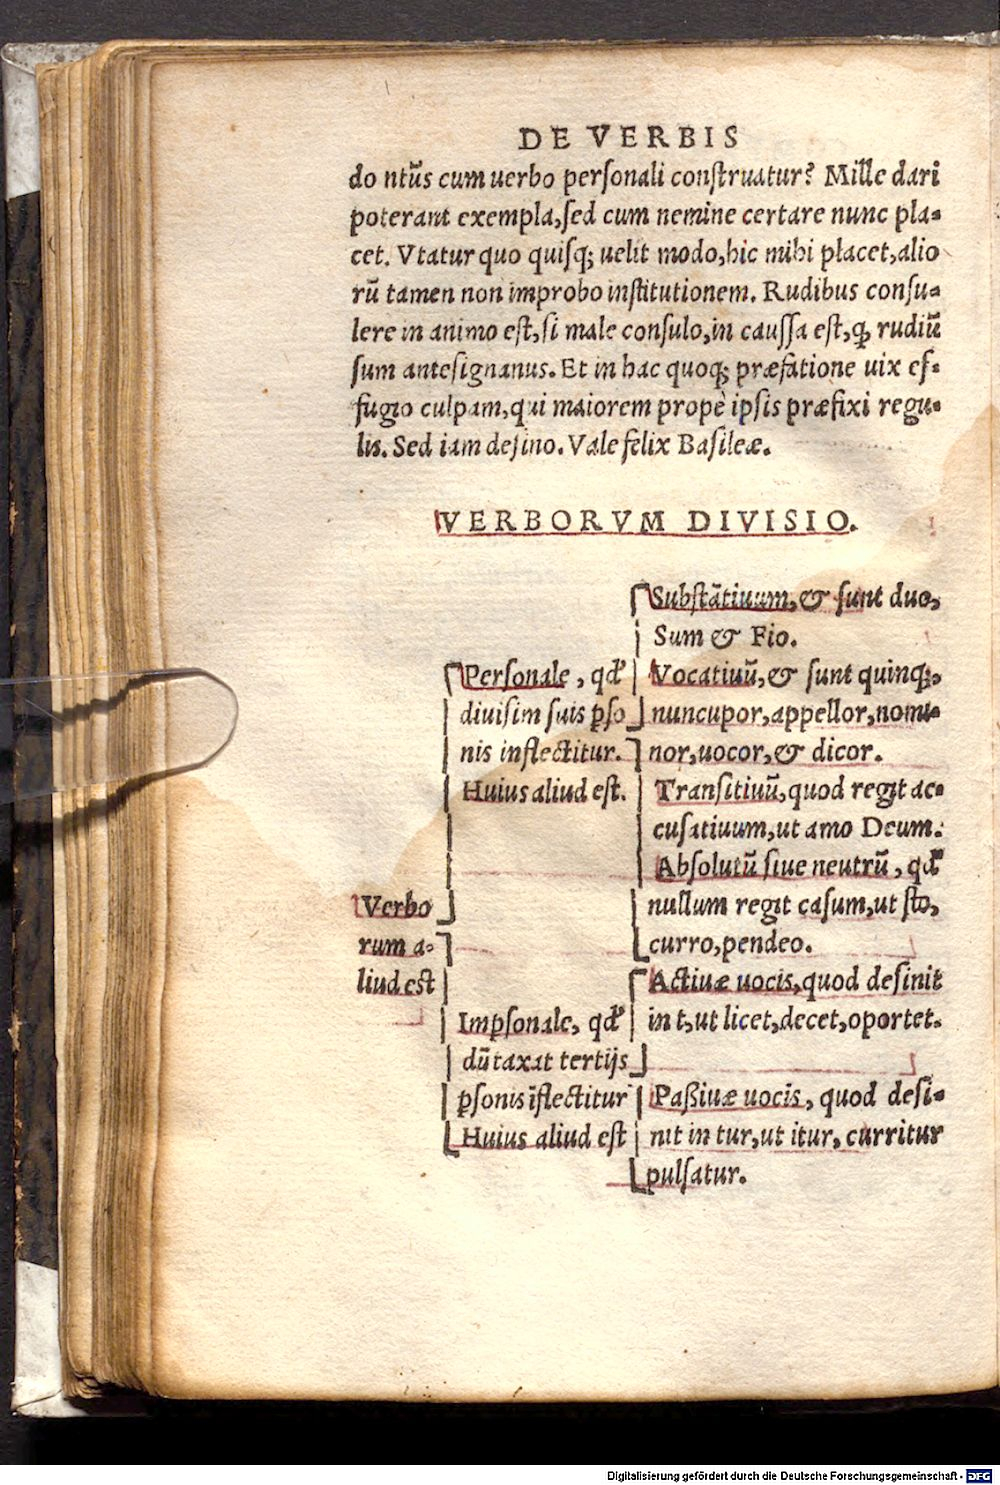 DE VERBIS
do ntũs cum uerbo perſonali conſtruatur? Mille dari
poterant exempla, ſed cum nemine certare nunc pla-
cet. Vtatur quo quiſq; uelit modo, hic mihi placet, alio
rũ tamen non improbo inſtitutionem. Rudibus conſu-
lere in animo eſt, ſi male conſulo, in cauſſa eſt, ꝙ rudiũ
ſum anteſignanus. Et in hac quoq; præfatione uix ef-
fugio culpam, qui maiorem propè ipſis præfixi regu-
lis. Sed iam deſino. Vale felix Baſileæ.
VERBORVM DIVISIO.
Verbo
rum a-
liud eſt
Perſonale, qd'
diuiſim ſuis ꝑſo
nis inflectitur.
Huius aliud eſt.
Subſtãtiuum, & ſunt duo,
Sum & Fio.
Vocatiuũ, & ſunt quinq;,
nuncupor, appellor, nomi-
nor, uocor, & dicor.
Tranſitiuũ, quod regit ac-
cuſatiuum, ut amo Deum.
Abſolutũ ſiue neutrũ, qd'
nullum regit caſum, ut ſto,
curro, pendeo.
Imꝑſonale, qd'
dũtaxat tertijs
ꝑſonis ĩflectitur
Huius aliud eſt
Actiuæ uocis, quod deſinit
in t, ut licet, decet, oportet.
Paßiuæ uocis, quod deſi-
nit in tur, ut itur, curritur
pulſatur.
Digitalisierung gefördert durch die Deutsche Forschungsgemeinschaft - DFG